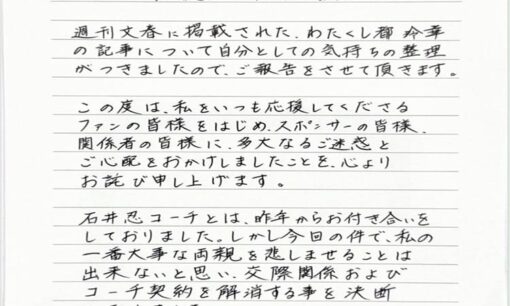 週刊文春に掲載された、わたくし都 玲華
の記事について自分としての気持ちの整理
がつきましたので、ご報告をさせて頂きます。
この度は、私をいつも応援してくださる
ファンの皆様をはじめ、スポンサーの皆様、
関係者の皆様に、多大なるご迷惑と
ご心配をおかけしましたことを、心より
お詫び申し上げます。
石井忍コーチとは、昨年からお付き合いを
しておりました。しかし今回の件で、私の
一番大事な両親を悲しませることは
出来ないと思い、交際関係および
コーチ契約を解消する事を決断